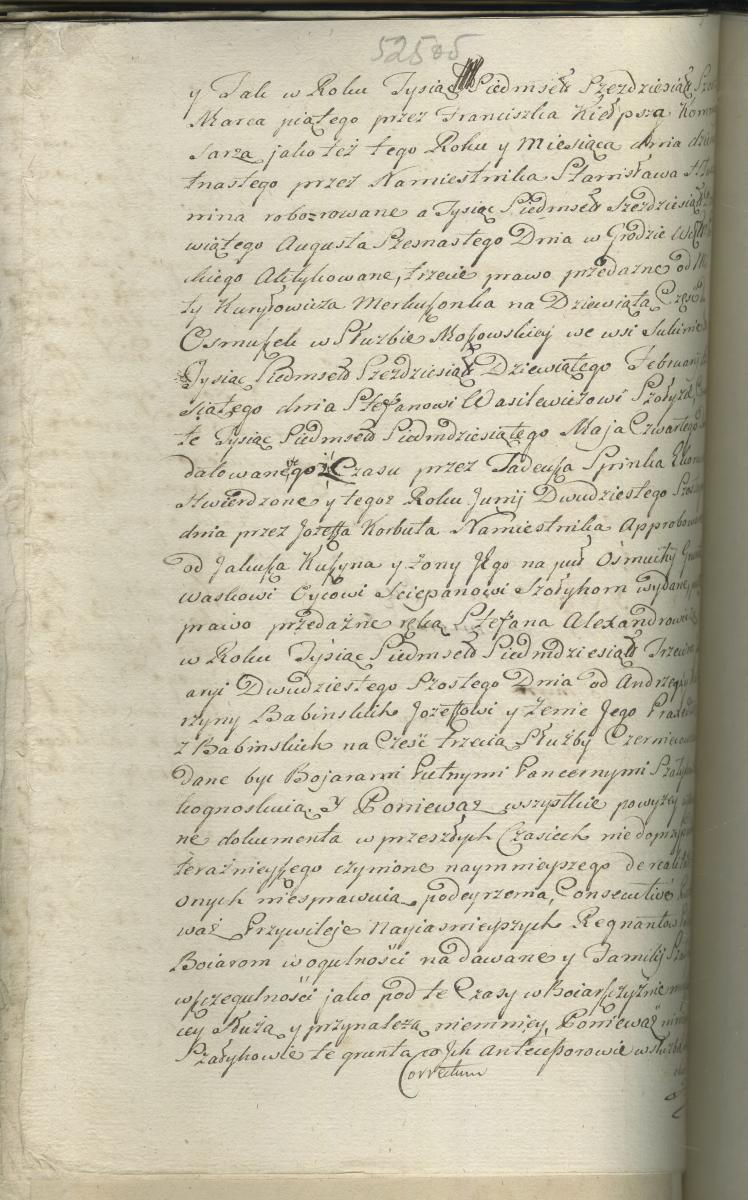 525
y Tak w Roku Tysiąc Siedmset Szezdziesiąt
Marca piątego przez Franciszka Kiełpsza Kommi
sarza, jako też tego Roku y Miesiąca dnia dzie
tnastego przez Namiestnika Stanisława
mina roborowane a Tysiąc Siedmset Szezdziesiąt
wiątego Augusta Szesnastego Dnia w Grodzie
ckiego Aktykowane, trzecie prawo przedazne od
ty Kuryłowicza Merkuszonka na Dziewiątą Częsć
Osmuszek w Służbie Moszowskiej we wsi
Tysiąc Siedmset Szezdziesiąt Dziewiątego Februaryi
siątego dnia Stefanowi Wasilewiczowi Szołyze
te Tysiąc Siedmset Siedmdziesiątego Maja Czwartego
datowanego Czasu przez Tadeusza Sprinka
stwierdzone y tegoż Roku Junij Dwudziestego Szostego
dnia przez Jozeffa Korbuta Namiestnika Approbowane
od Jakusza Kuszyna y Zony Jego na puł Ośmuchy
waskowi Oycowi Sciepanowi Szołykom wydane,
prawo przedażne ręką Stefana Alexandrowicza
w Roku Tysiąc Siedmset Siedmdziesiąt Trzecim
aryi Dwudziestego Szostego Dnia od Andrzeja y
rzyny Babinskich Jozeffowi y Zenie Jego
z Babinskich na Cześć trzecią Służby
dane być Bojarami Putnymi Pancernymi
kognoskuią. Y Ponieważ wszystkie powyzey
ne dokumenta w przeszłych Czasiech nie
teraźnieyszego czynione naymnieyszego
onych niesprawuią podeyrzenia, Consecutive
waż Przywileje Nayiasnieyszych Regnantow
Boiarom w ogulności nadawane y Familij
wszczegulności jako pod te Czasy w Boiarszczyznie
cey służą y przynależą niemniey, Ponieważ
Szołykowie te grunta co Jch Antecessorowie w służbą
Correctum